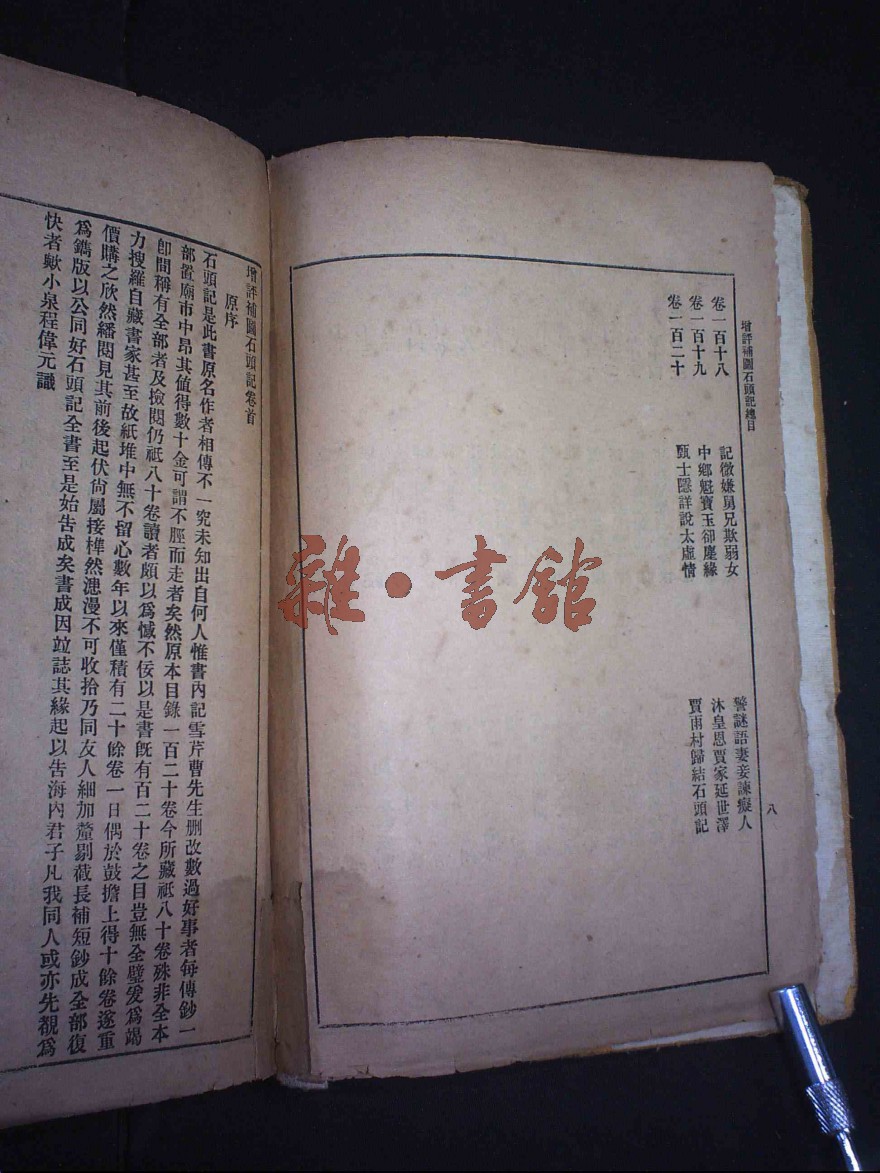 增評補圖石頭記總目
八
卷一百十八 記微嫌舅兄欺弱女 警謎語妻妾諫癡人
卷一百十九 中鄉魁寶玉卻塵緣 沐皇恩賈家延世澤
卷一百二十 甄士隱詳說太虛情 賈雨村歸結石頭記
增評補圖石頭記卷首
原序
石頭記是此書原名作者相傳不一究未知出自何人惟書內記雪芹曹先生刪改數過好事者每傳鈔一
部置廟市中昂其值得數十金可謂不脛而走者矣然原本目錄一百二十卷今所藏祗八十卷殊非全本
卽間稱有全部者及檢閱仍祗八十卷讀者頗以爲憾不佞以是書旣有百二十卷之目豈無全璧爰爲竭
力搜羅自藏書家甚至故紙堆中無不留心數年以來僅積有二十餘卷一日偶於鼓擔上得十餘卷遂重
價購之欣然繙閱見其前後起伏尙屬接榫然漶漫不可收拾乃同友人細加釐剔截長補短鈔成全部復
爲鐫版以公同好石頭記全書至是始告成矣書成因竝誌其緣起以告海內君子凡我同人或亦先覩爲
快者歟小泉程偉元識
雜·書館